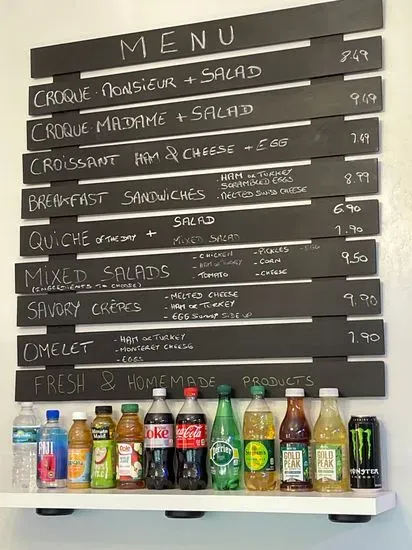 MENU
CROQUE-MONSIEUR + SALAD 8.49
CROQUE-MADAME + SALAD 9.49
CROISSANT HAM & CHEESE + EGG 7.49
BREAKFAST SANDWICHES
- HAM OR TURKEY
SCRAMBLED EGGS
- MELTED SWISS CHEESE
8.99
QUICHE OF THE DAY +
SALAD 6.90
MIXED SALAD 7.90
MIXED SALADS
(INGREDIENTS TO CHOOSE)
- CHICKEN - PICKLES - EGG
- HAM OR TURKEY - CORN
- TOMATO - CHEESE
9.50
SAVORY CRÊPES
- MELTED CHEESE
- HAM OR TURKEY
- EGG SUNNY SIDE UP
9.90
OMELET
- HAM OR TURKEY
- MONTEREY CHEESE
- EGGS
7.90
FRESH & HOMEMADE PRODUCTS
FIJI
Coke
Coca-Cola
perrier
GOLD PEAK
GOLD PEAK
MONSTER
ENERGY